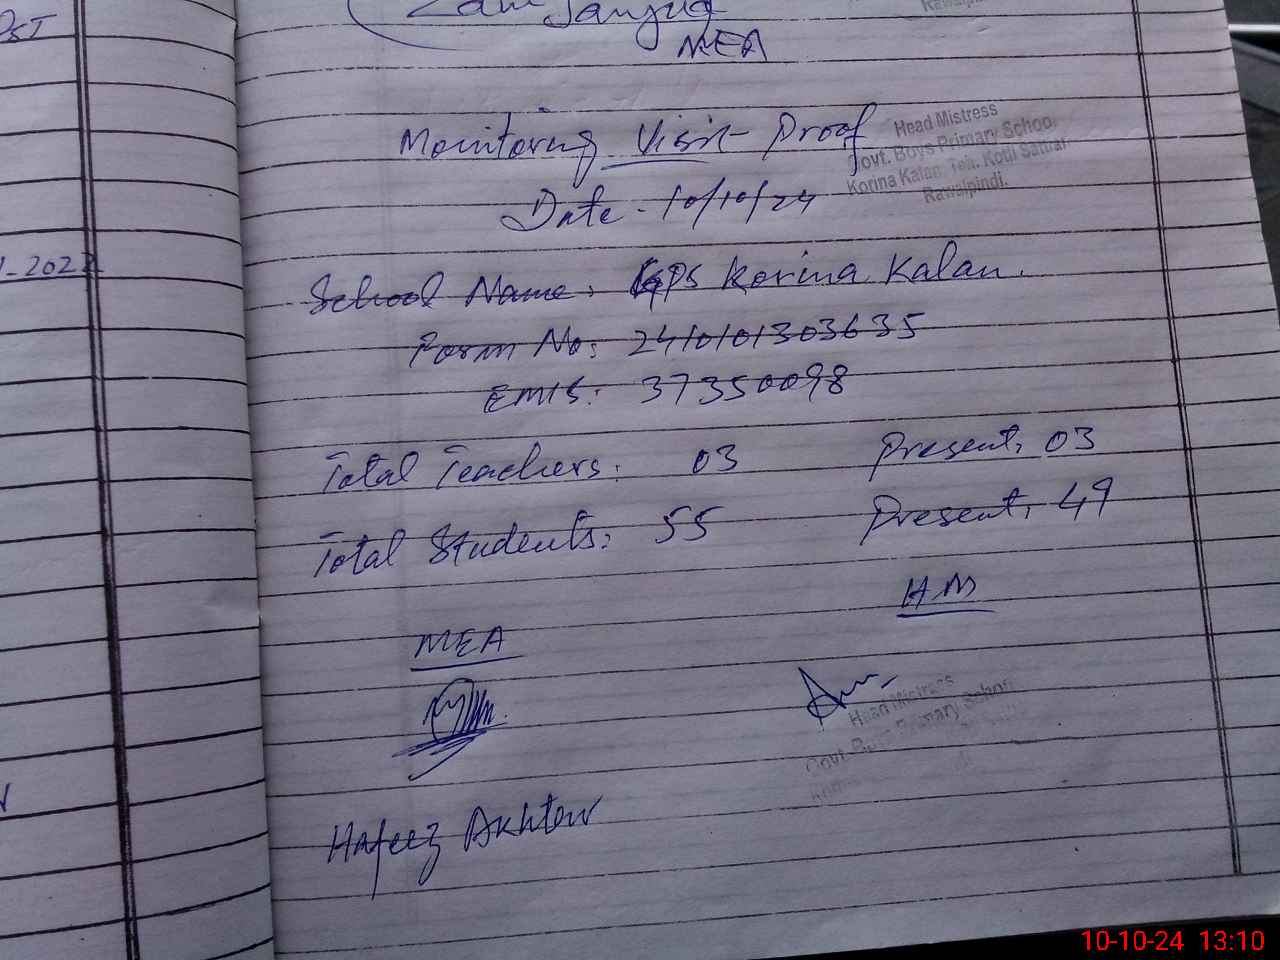 PST
Zain Janjua
MEA
Monitoring Visit Proof
Head Mistress
Govt. Boys Primary School
Korina Kalan, Teh. Kotli Sattian
Rawalpindi.
Date. 10/10/24
-2022
School Name: GPS Korina Kalan.
Form No: 2410101303635
EMIS: 37350098
Total Teachers: 03 Present: 03
Total Students: 55 Present: 49
HM
MEA
Head Mistress
Govt. Boys Primary School
Hafeez Akhtar
10-10-24 13:10